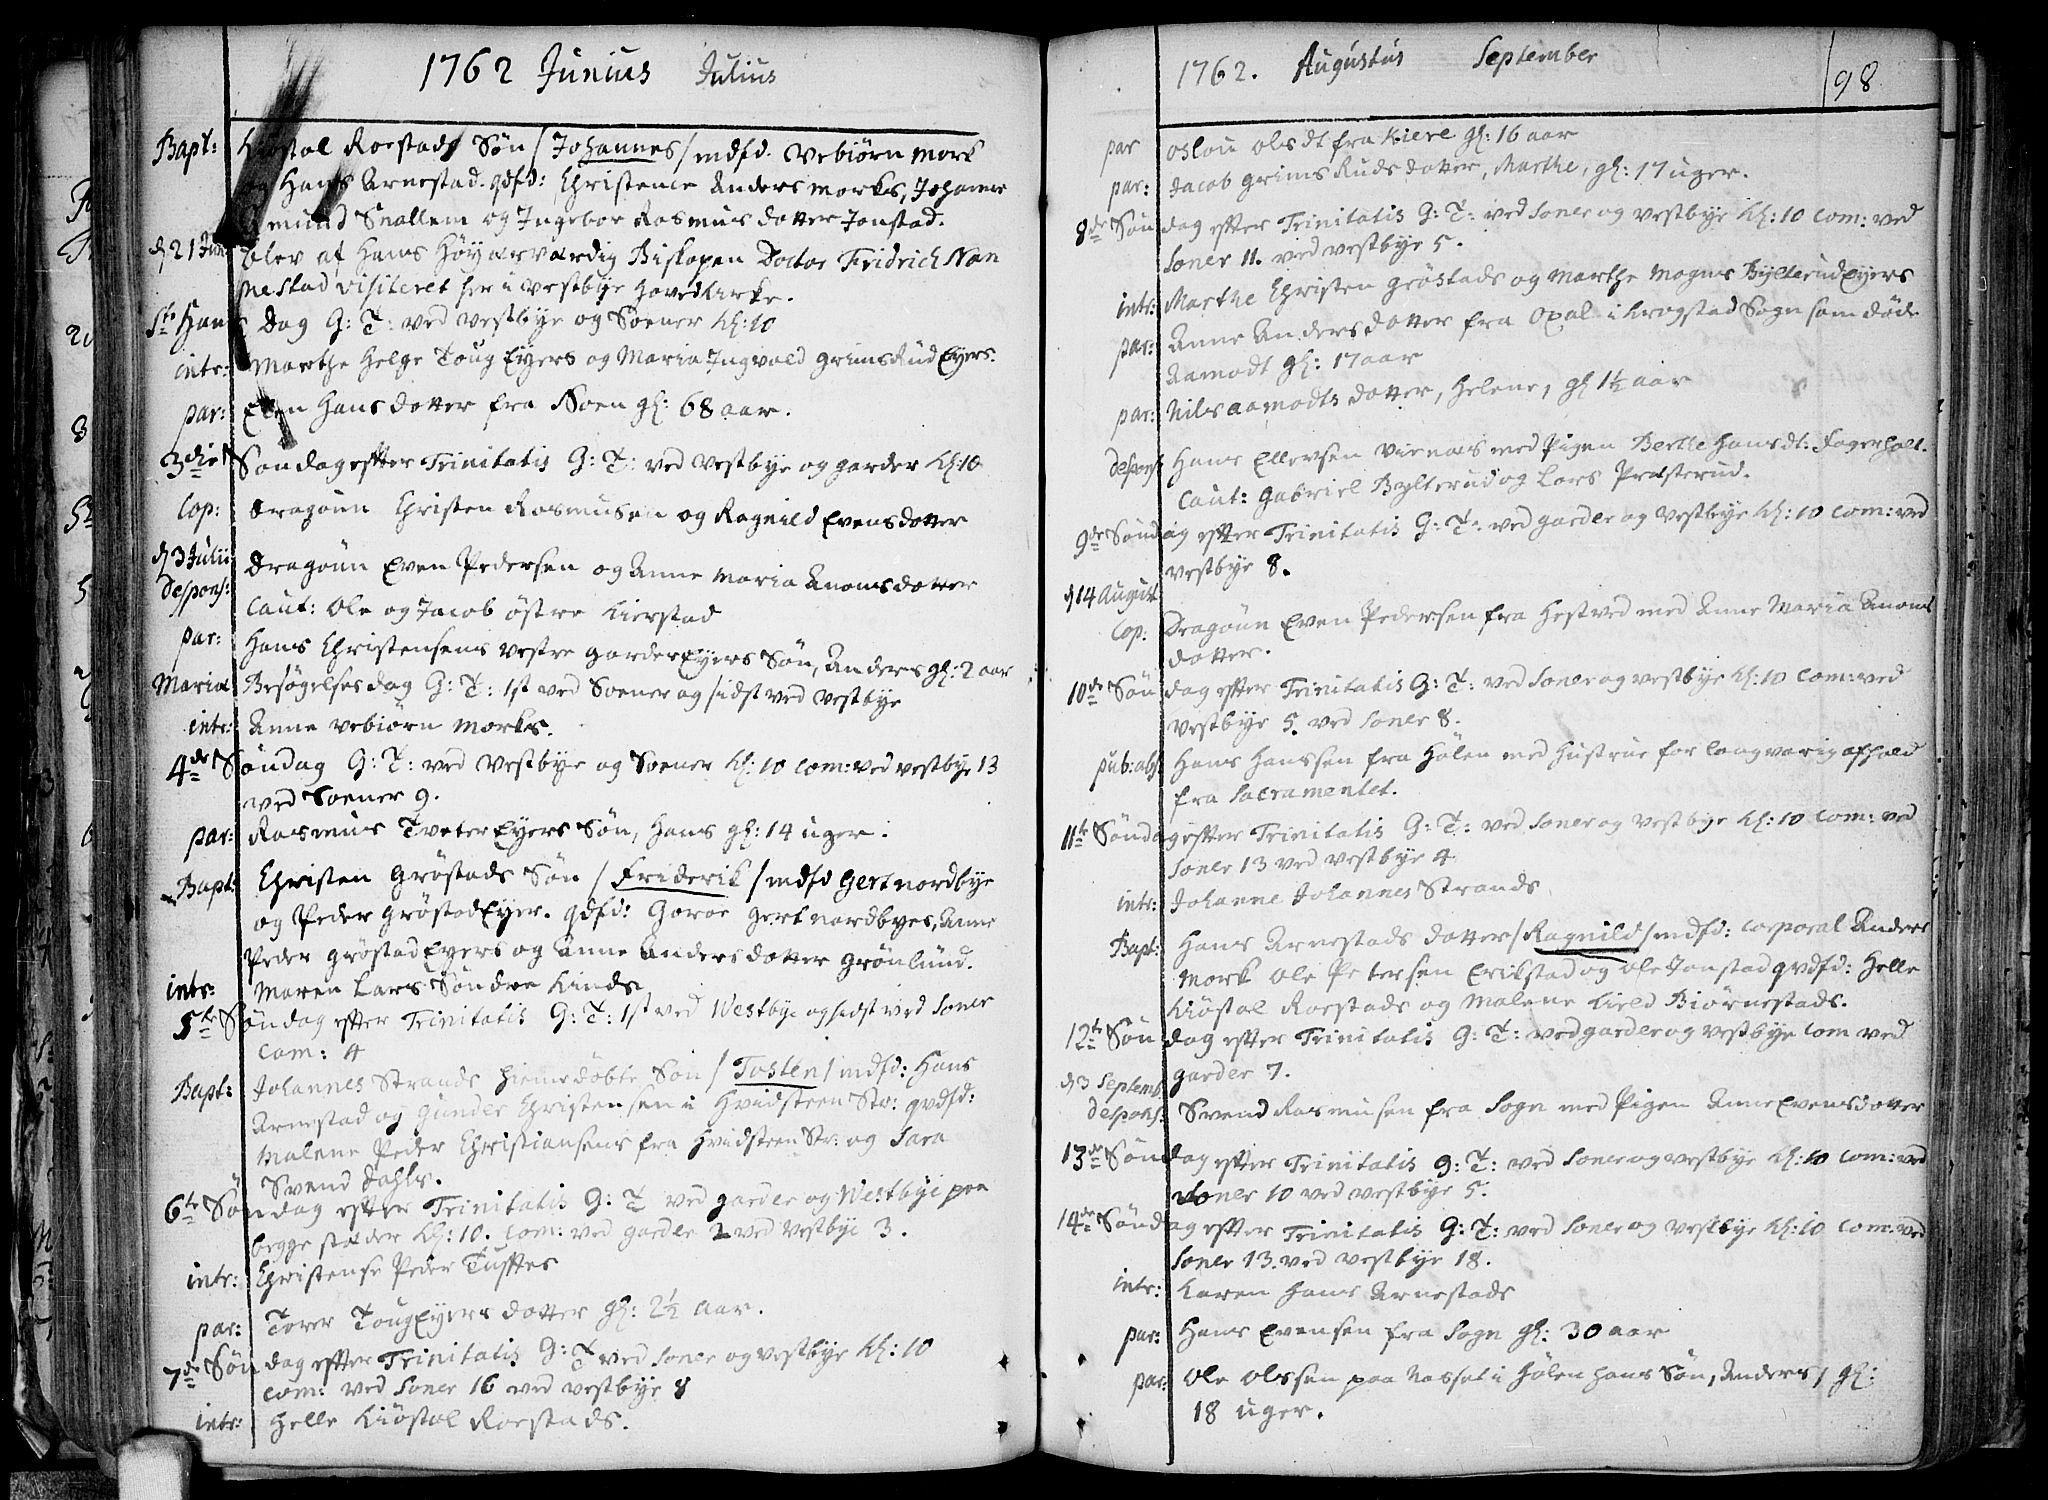 1762 Junius Julius
Bapt: Kiøstol Roestads Søn / Johannes / mdfd. Vebiørn Mork
og Hans Arnestad. qdfd: Christence Anders Morks, Johanne
Gmund Snallem og Ingebor Rasmus dotter Jonstad.
d 21 Juni blev af Hans Høyærværdig Biskopen Doctor Fridrich Nan
nestad visiteret her i Vestbye Hovedkirke.
St Hans Dag G: T: ved Vestbye og Soener Kl: 10
intr: Marthe Helge Toug Eyers og Maria Ingvald Grimsrud Eyers.
par: Elen Hans dotter fra Noen gl: 68 aar.
3die Søndag effter Trinitatis G: T: ved Vestbye og garder Kl: 10
Cop: Dragoun Christen Rasmusen og Ragnild Evensdotter
d 3 Julii
Despons: Dragoun Even Pedersen og Anne Maria Anomsdotter
Caut: Ole og Jacob østre Kierstad
par: Hans Christensens vestre garder Eyers Søn, Anders gl: 2 aar
Mariæ Besøgelses dag G: T: 1st ved Soener og sidst ved Vestbye
intr: Anne Vebiørn Morks.
4de Søndag G: T: ved Vestbye og Soener Kl: 10 Com: ved vestbye 13
ved Soener 9.
par: Rasmus Tveter Eyers Søn, Hans gl: 14 uger.
Bapt: Christen Grøstads Søn / Friderik / mdfd Gert nordbye
og Peder Grøstad Eyer. qdfd: Goroe Gert nordbyes, Anne
Peder Grøstad Eyers og Anne Anders dotter Grønlund.
intr: Maren Lars Søndre Kinds
5te Søndag effter Trinitatis G: T: 1st ved Westbye og sidst ved Soner
Com: 4
Bapt: Johannes Strands hiemedøbte Søn / Tosten / mdfd: Hans
Arnestad og Gunder Christensen i Hvidsteen Str: qvdfd:
Malene Peder Christiansens fra Hvidsteen Str: og Sara
Svend Dahls.
6te Søndag effter Trinitatis G: T ved garder og Westbye paa
begge stæder Kl: 10. Com: ved garder 2 ved Vestbye 3.
intr: Christense Peder Tufftes
par: Torer Toug Eyers dotter gl: 2½ aar.
7de Søndag effter Trinitatis G: T ved Soner og vestbye Kl: 10
Com: ved Soner 16 ved vestbye 8
intr: Helle Kiøstol Roestads.
1762. Augustus September 98
par Oslou Ols dt fra Kiere gl: 16 aar
par: Jacob Grimsruds dotter, Marthe, gl: 17 uger.
8de Søndag effter Trinitatis G: T: ved Soner og vestbye Kl: 10 Com: ved
Soner 11. ved vestbye 5.
intr: Marthe Christen Grøstads og Marthe Mogns Bylterud Eyers
par: Anne Anders dotter fra Oxal i Krogstad Sogn som døde
Aamodt gl: 17 aar
par: Nils Aamodts dotter, Helene, gl 1½ aar
Despons: Hans Ellevsen Viernæs med Pigen Berthe Hans dt: Fagerholt.
Caut: Gabriel Bylterud og Lars Præsterud.
9de Søndag effter Trinitatis G: T: ved garder og Vestbye Kl: 10 Com: ved
vestbye 8.
d 14 August
Cop: Dragoun Even Pedersen fra Hestved med Anne Maria Anoms
dotter.
10de Søndag effter Trinitatis G: T: ved Soner og vestbye Kl: 10 Com: ved
vestbye 5. ved Soner 8.
pub: abs: Hans Hanssen fra Hølen med Hustrue for langvarig afhold
fra Sacramentet.
11te Søndag effter Trinitatis G: T: ved Soner og vestbye Kl: 10 Com: ved
Soner 13 ved vestbye 4
intr: Johanne Johannes Strands
Bapt: Hans Arnestads dotter / Ragnild / mdfd: Corporal Anders
Mork Ole Petersen Erikstad og Ole Jonstad qvdfd: Helle
Kiøstol Roestads og Malene Kield Biørnestads.
12te Søndag effter Trinitatis G: T: ved garder og vestbye Com ved
garder 7.
d 3 Septemb
Despons: Svend Rasmusen fra Sogn med Pigen Anne Evensdotter
13de Søndag effter Trinitatis G: T: ved Soner og vestbye Kl: 10 Com: ved
Soner 10 ved vestbye 5.
14de Søndag effter Trinitatis G: T: ved Soner og vestbye Kl: 10 Com: ved
Soner 13. ved vestbye 18.
intr: Karen Hans Arnestads
par: Hans Evensen fra Sogn gl: 30 aar
par: Ole Olssen paa Nasset i Hølen hans Søn, Anders, gl:
18 uger.